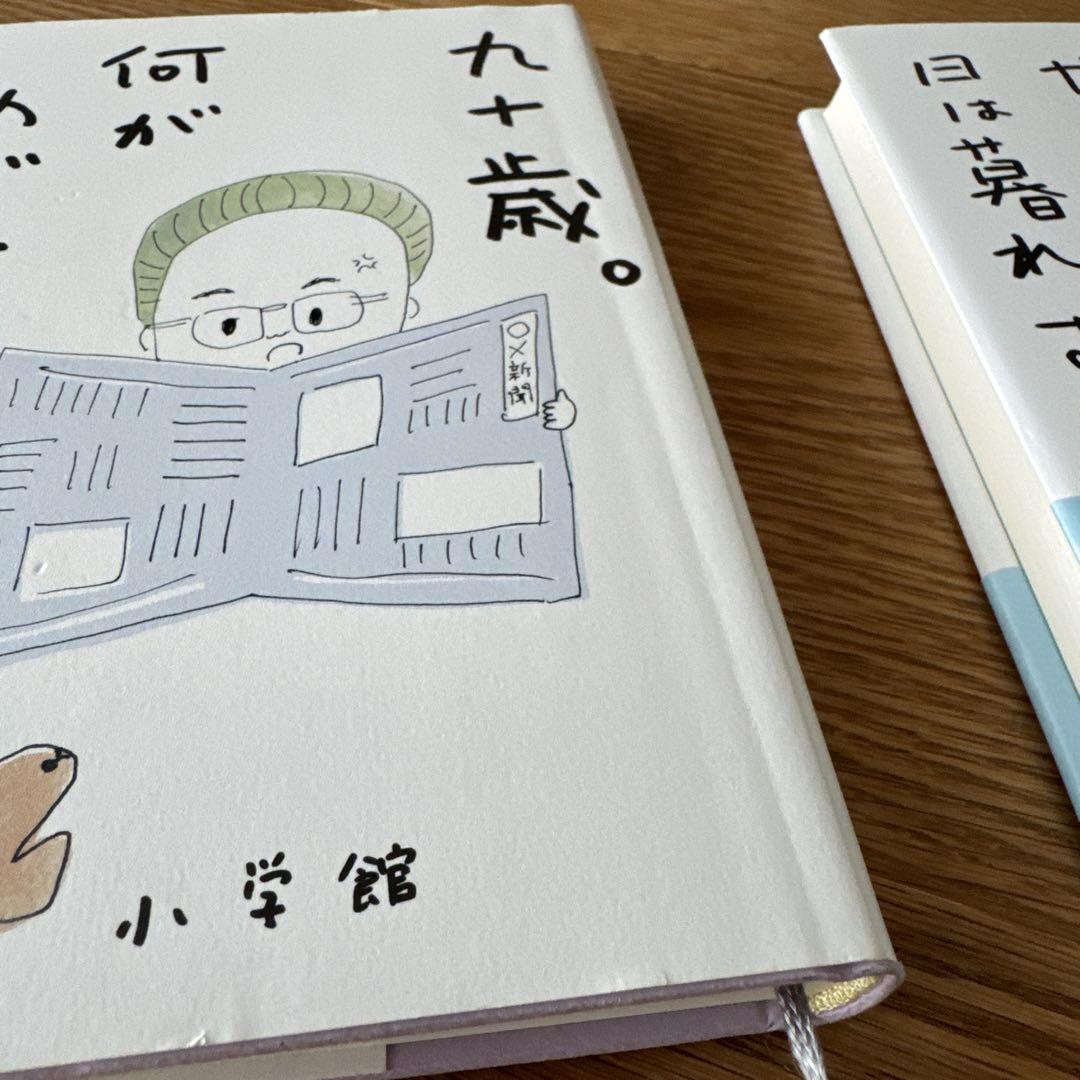 九十歳。
何が
めで
〇×新聞
小学館
日は暮れ